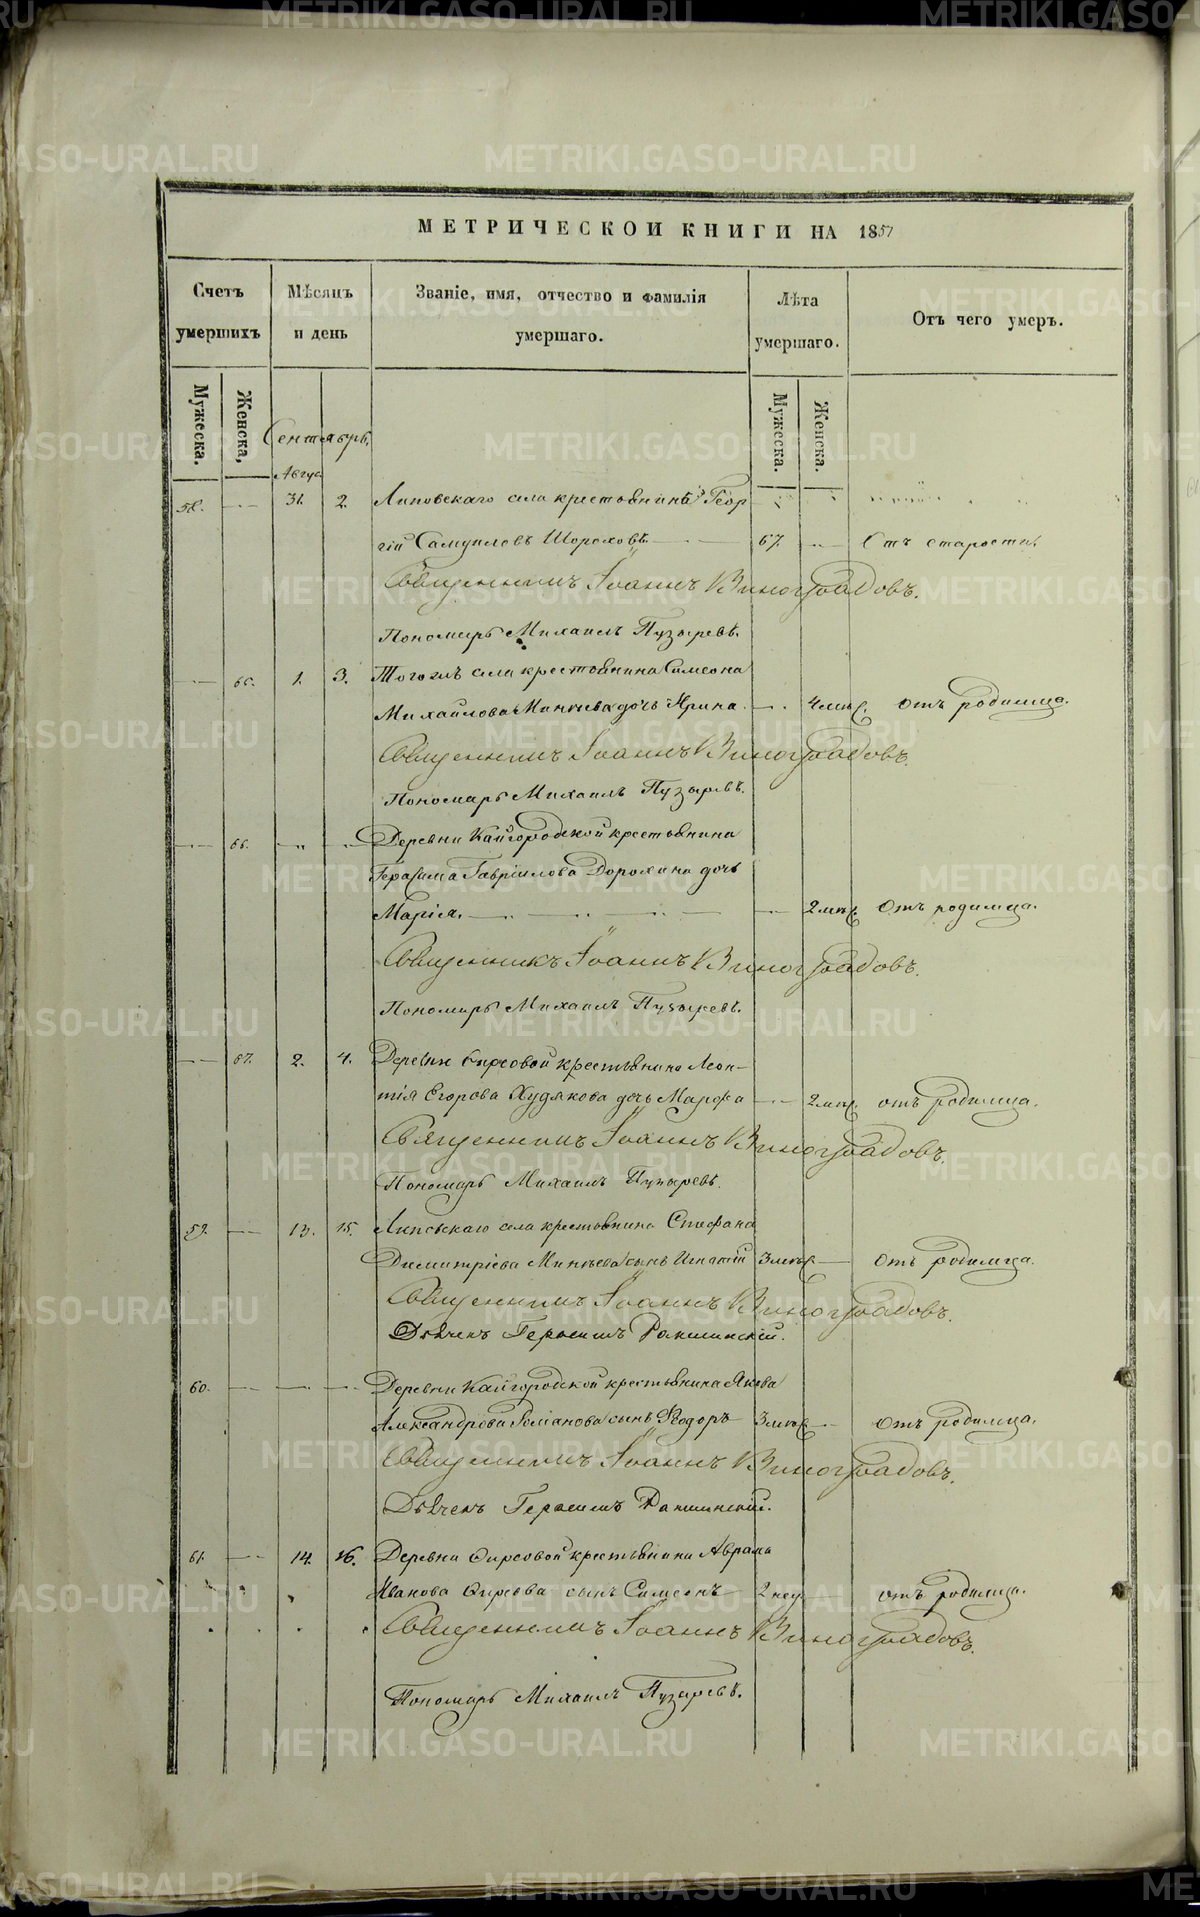 МЕТРИЧЕСКОЙ КНИГИ НА 1857
Счетъ умершихъ
Мѣсяцъ и день
Званіе, имя, отчество и фамилія умершаго.
Лѣта умершаго.
Отъ чего умеръ.
Мужеска.
Женска,
Мужеска.
Женска.
Сентябрь.
Авгус
58. 31. 2. Липовскаго села крестьянинъ Геор
гій Самуиловъ Шороховъ. 67. Отъ старости.
Священникъ Іоаннъ Виноградовъ.
Пономарь Михаилъ Пузыревъ.
65. 1. 3. Тогожъ села крестьянина Симеона
Михайлова Минѣева дочь Ирина. 4 мѣс. отъ родимца.
Священникъ Іоаннъ Виноградовъ.
Пономарь Михаилъ Пузыревъ.
66. Деревни Кайгородской крестьянина
Герасима Гавріилова Дорохина дочь
Марія. 2 мѣс. Отъ родимца.
Священникъ Іоаннъ Виноградовъ.
Пономарь Михаилъ Пузыревъ.
67. 2. 4. Деревни крестьянина Леон-
тія Егорова Худякова дочь Марфа 2 мѣс. отъ родимца.
Священникъ Іоаннъ Виноградовъ.
Пономарь Михаилъ Пузыревъ.
59. 13. 15. Липовскаго села крестьянина Стефана
Димитріева Минѣева сынъ Игнатій 3 мѣс. Отъ родимца.
Священникъ Іоаннъ Виноградовъ.
Дьячекъ Герасимъ
60. Деревни Кайгородской крестьянина Якова
Александрова сынъ Ѳедоръ 3 мѣс. Отъ родимца.
Священникъ Іоаннъ Виноградовъ.
Дьячекъ Герасимъ
61. 14. 16. Деревни крестьянина Аврама
Иванова сынъ Симеонъ 2 нед. отъ родимца.
Священникъ Іоаннъ Виноградовъ.
Пономарь Михаилъ Пузыревъ.
METRIKI.GASO-URAL.RU